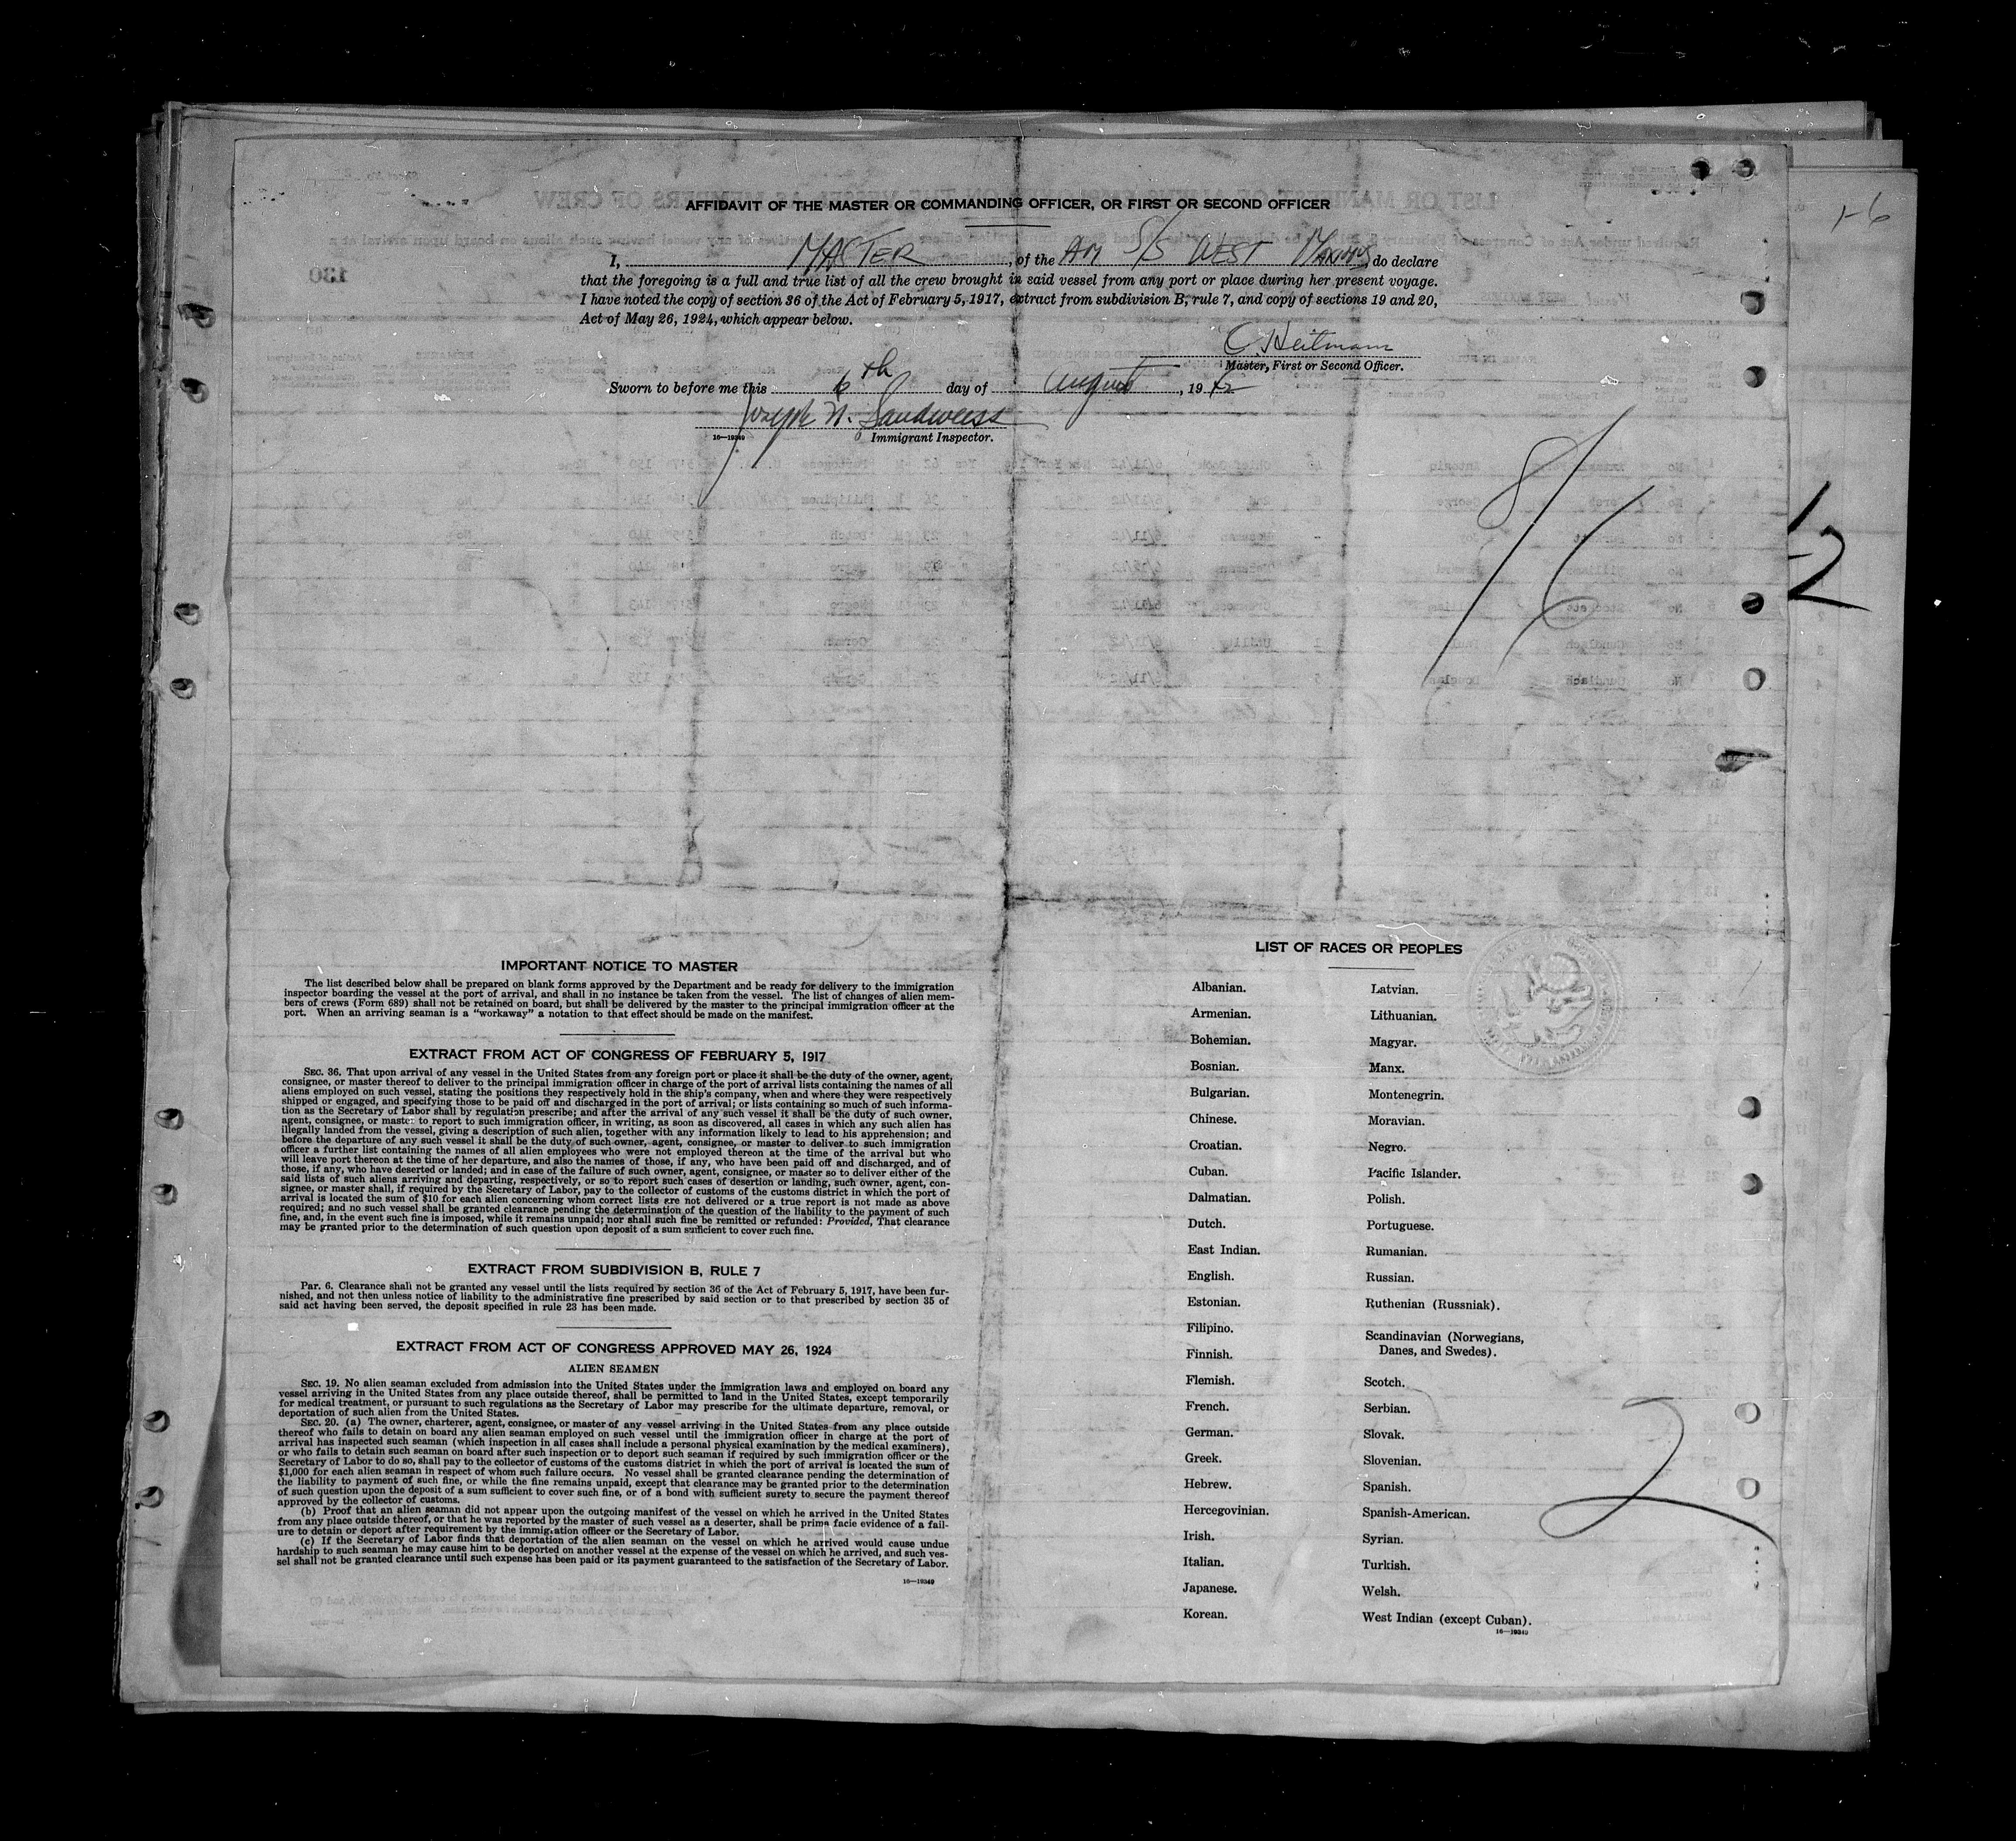 AFFIDAVIT OF THE MASTER OR COMMANDING OFFICER, OR FIRST OR SECOND OFFICER
I, MASTER, of the AM S/S WEST do declare
that the foregoing is a full and true list of all the crew brought in said vessel from any port or place during her present voyage.
I have noted the copy of section 36 of the Act of February 5, 1917, extract from subdivision B, rule 7, and copy of sections 19 and 20,
Act of May 26, 1924, which appear below.
C. Heitmann
Master, First or Second Officer.
Sworn to before me this 6th day of August, 1942
Joseph N. Sandweiss
16—19349 Immigrant Inspector.
1-6
8/6
12
IMPORTANT NOTICE TO MASTER
The list described below shall be prepared on blank forms approved by the Department and be ready for delivery to the immigration
inspector boarding the vessel at the port of arrival, and shall in no instance be taken from the vessel. The list of changes of alien mem-
bers of crews (Form 689) shall not be retained on board, but shall be delivered by the master to the principal immigration officer at the
port. When an arriving seaman is a "workaway" a notation to that effect should be made on the manifest.
EXTRACT FROM ACT OF CONGRESS OF FEBRUARY 5, 1917
SEC. 36. That upon arrival of any vessel in the United States from any foreign port or place it shall be the duty of the owner, agent,
consignee, or master thereof to deliver to the principal immigration officer in charge of the port of arrival lists containing the names of all
aliens employed on such vessel, stating the positions they respectively hold in the ship's company, when and where they were respectively
shipped or engaged, and specifying those to be paid off and discharged in the port of arrival; or lists containing so much of such informa-
tion as the Secretary of Labor shall by regulation prescribe; and after the arrival of any such vessel it shall be the duty of such owner,
agent, consignee, or master to report to such immigration officer, in writing, as soon as discovered, all cases in which any such alien has
illegally landed from the vessel, giving a description of such alien, together with any information likely to lead to his apprehension; and
before the departure of any such vessel it shall be the duty of such owner, agent, consignee, or master to deliver to such immigration
officer a further list containing the names of all alien employees who were not employed thereon at the time of the arrival but who
will leave port thereon at the time of her departure, and also the names of those, if any, who have been paid off and discharged, and of
those, if any, who have deserted or landed; and in case of the failure of such owner, agent, consignee, or master so to deliver either of the
said lists of such aliens arriving and departing, respectively, or so to report such cases of desertion or landing, such owner, agent, con-
signee, or master shall, if required by the Secretary of Labor, pay to the collector of customs of the customs district in which the port of
arrival is located the sum of $10 for each alien concerning whom correct lists are not delivered or a true report is not made as above
required; and no such vessel shall be granted clearance pending the determination of the question of the liability to the payment of such
fine, and, in the event such fine is imposed, while it remains unpaid; nor shall such fine be remitted or refunded: Provided, That clearance
may be granted prior to the determination of such question upon deposit of a sum sufficient to cover such fine.
EXTRACT FROM SUBDIVISION B, RULE 7
Par. 6. Clearance shall not be granted any vessel until the lists required by section 36 of the Act of February 5, 1917, have been fur-
nished, and not then unless notice of liability to the administrative fine prescribed by said section or to that prescribed by section 35 of
said act having been served, the deposit specified in rule 23 has been made.
EXTRACT FROM ACT OF CONGRESS APPROVED MAY 26, 1924
ALIEN SEAMEN
SEC. 19. No alien seaman excluded from admission into the United States under the immigration laws and employed on board any
vessel arriving in the United States from any place outside thereof, shall be permitted to land in the United States, except temporarily
for medical treatment, or pursuant to such regulations as the Secretary of Labor may prescribe for the ultimate departure, removal, or
deportation of such alien from the United States.
SEC. 20. (a) The owner, charterer, agent, consignee, or master of any vessel arriving in the United States from any place outside
thereof who fails to detain on board any alien seaman employed on such vessel until the immigration officer in charge at the port of
arrival has inspected such seaman (which inspection in all cases shall include a personal physical examination by the medical examiners),
or who fails to detain such seaman on board after such inspection or to deport such seaman if required by such immigration officer or the
Secretary of Labor to do so, shall pay to the collector of customs of the customs district in which the port of arrival is located the sum of
$1,000 for each alien seaman in respect of whom such failure occurs. No vessel shall be granted clearance pending the determination of
the liability to payment of such fine, or while the fine remains unpaid, except that clearance may be granted prior to the determination
of such question upon the deposit of a sum sufficient to cover such fine, or of a bond with sufficient surety to secure the payment thereof
approved by the collector of customs.
(b) Proof that an alien seaman did not appear upon the outgoing manifest of the vessel on which he arrived in the United States
from any place outside thereof, or that he was reported by the master of such vessel as a deserter, shall be prima facie evidence of a fail-
ure to detain or deport after requirement by the immigration officer or the Secretary of Labor.
(c) If the Secretary of Labor finds that deportation of the alien seaman on the vessel on which he arrived would cause undue
hardship to such seaman he may cause him to be deported on another vessel at the expense of the vessel on which he arrived, and such ves-
sel shall not be granted clearance until such expense has been paid or its payment guaranteed to the satisfaction of the Secretary of Labor.
16—19349
LIST OF RACES OR PEOPLES
Albanian.
Armenian.
Bohemian.
Bosnian.
Bulgarian.
Chinese.
Croatian.
Cuban.
Dalmatian.
Dutch.
East Indian.
English.
Estonian.
Filipino.
Finnish.
Flemish.
French.
German.
Greek.
Hebrew.
Hercegovinian.
Irish.
Italian.
Japanese.
Korean.
Latvian.
Lithuanian.
Magyar.
Manx.
Montenegrin.
Moravian.
Negro.
Pacific Islander.
Polish.
Portuguese.
Rumanian.
Russian.
Ruthenian (Russniak).
Scandinavian (Norwegians,
Danes, and Swedes).
Scotch.
Serbian.
Slovak.
Slovenian.
Spanish.
Spanish-American.
Syrian.
Turkish.
Welsh.
West Indian (except Cuban).
16—19349
2